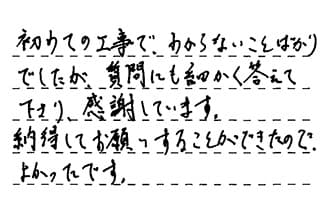 初めての工事で、わからないことばかり
でしたが、質問にも細かく答えて
下さり、感謝しています。
納得してお願いすることができたので、
よかったです。